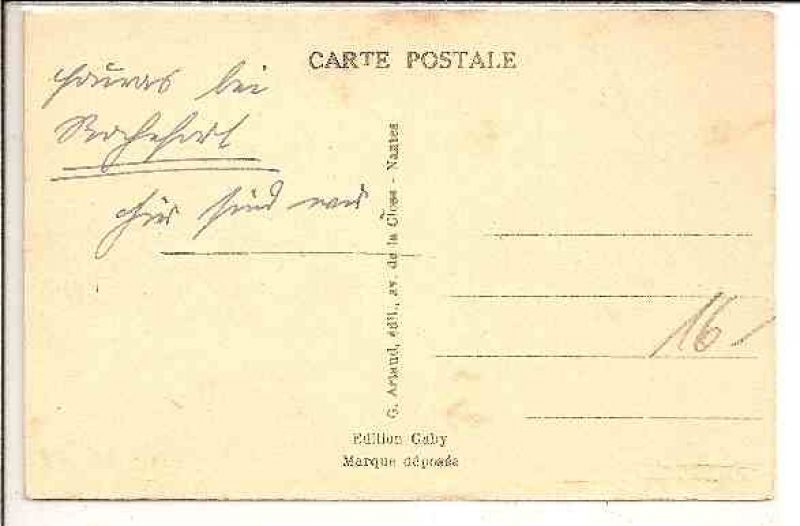 CARTE POSTALE
Fouras bei
Rochefort
hier sind wir
G. Artaud, édit., av. de la Close - Nantes
16
Edition Gaby
Marque déposée